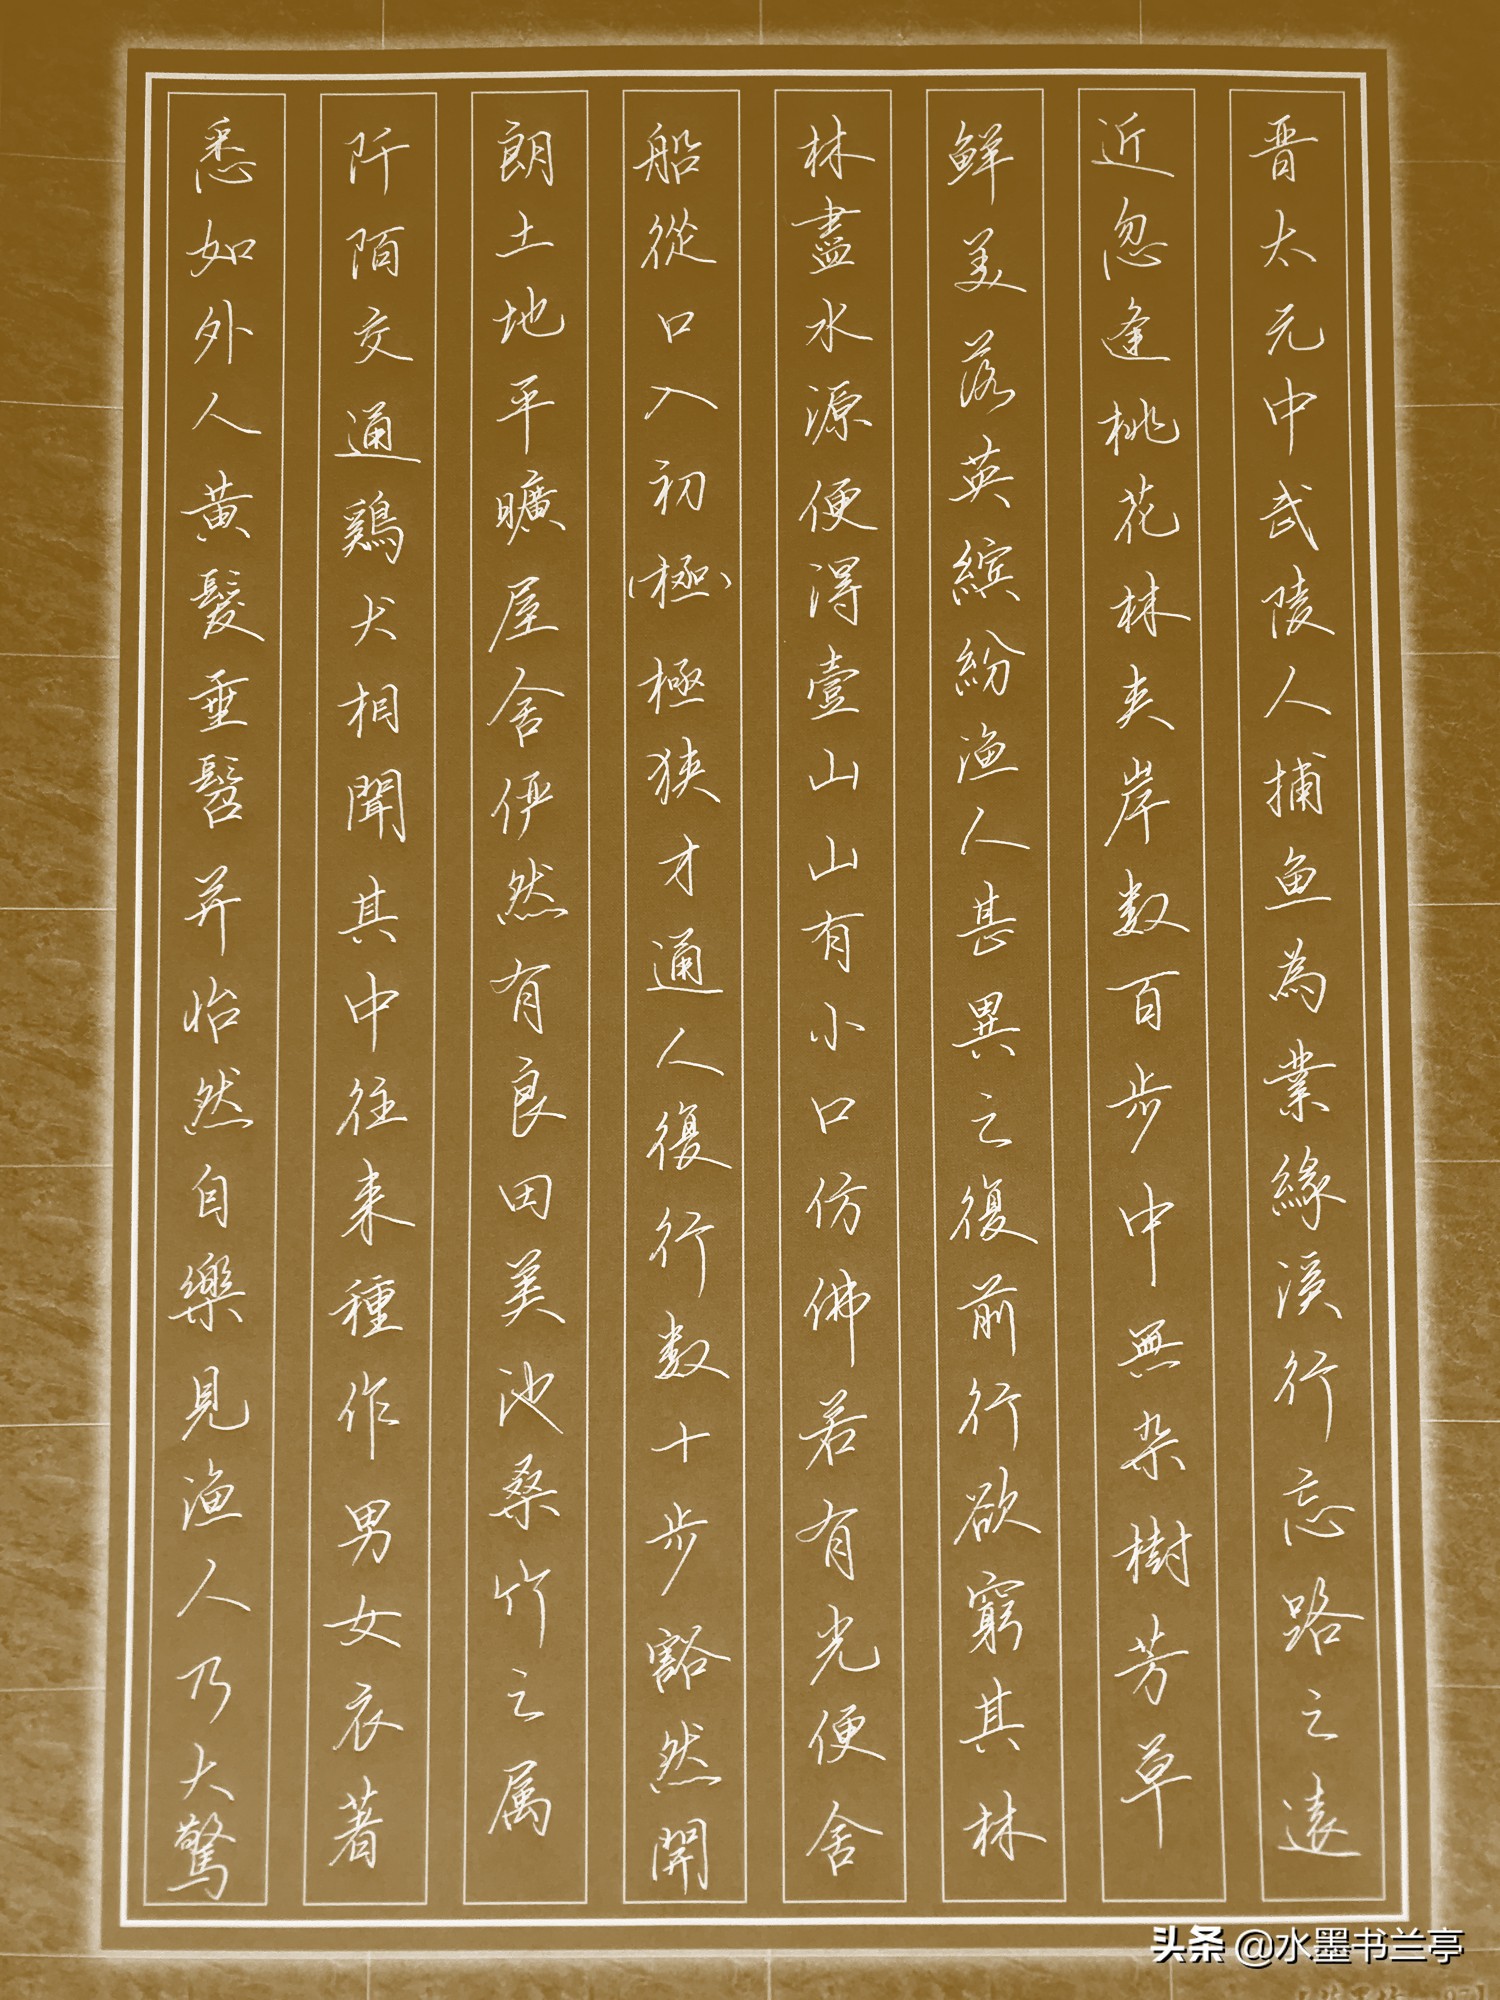 晋太元中武陵人捕鱼為業緣溪行忘路之遠
近忽逢桃花林夹岸数百步中無杂樹芳草
鲜美落英繽紛渔人甚異之復前行欲窮其林
林盡水源便得壹山山有小口仿佛若有光便舍
船從口入初(極)極狭才通人復行数十步豁然開
朗土地平曠屋舍俨然有良田美池桑竹之属
阡陌交通鷄犬相聞其中往来種作男女衣著
悉如外人黄髮垂髫并怡然自樂見渔人乃大驚
头条 @水墨书兰亭